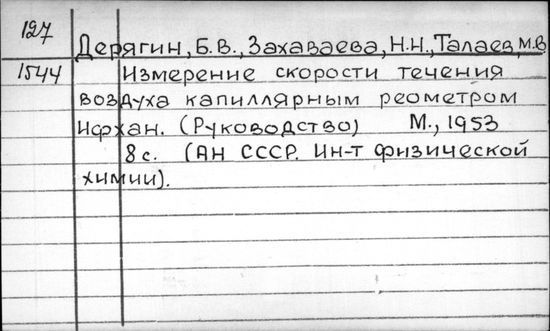 127
Дерягин, Б.В., Захаваева, Н.Н., Талаев, М.В.
1544
Измерение скорости течения
воздуха капиллярным реометром
Ифхан. (Руководство) М., 1953
8 с. (АН СССР. Ин-т физической
химии).